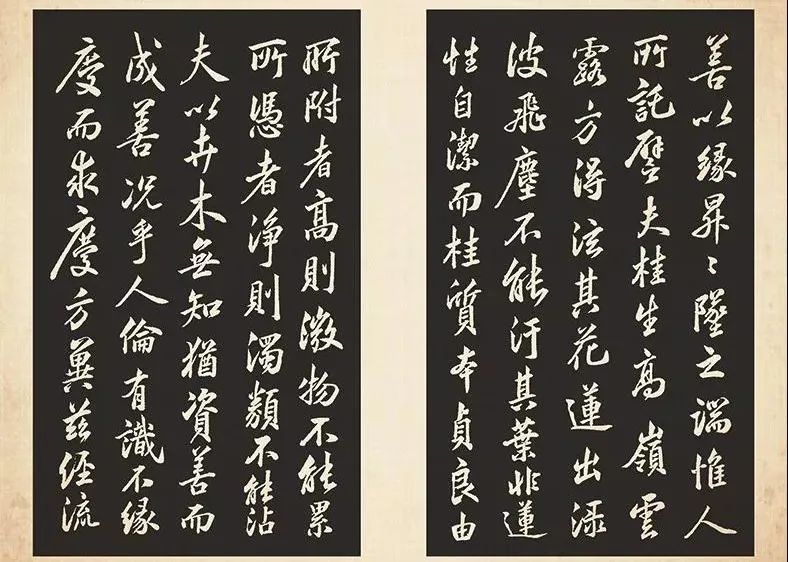 善以緣昇〻墜之端惟人
所託譬夫桂生高嶺雲
露方得泫其花蓮出淥
波飛塵不能汙其葉非蓮
性自潔而桂質本貞良由
所附者高則微物不能累
所憑者淨則濁類不能沾
夫以卉木無知猶資善而
成善況乎人倫有識不緣
慶而求慶方冀茲經流